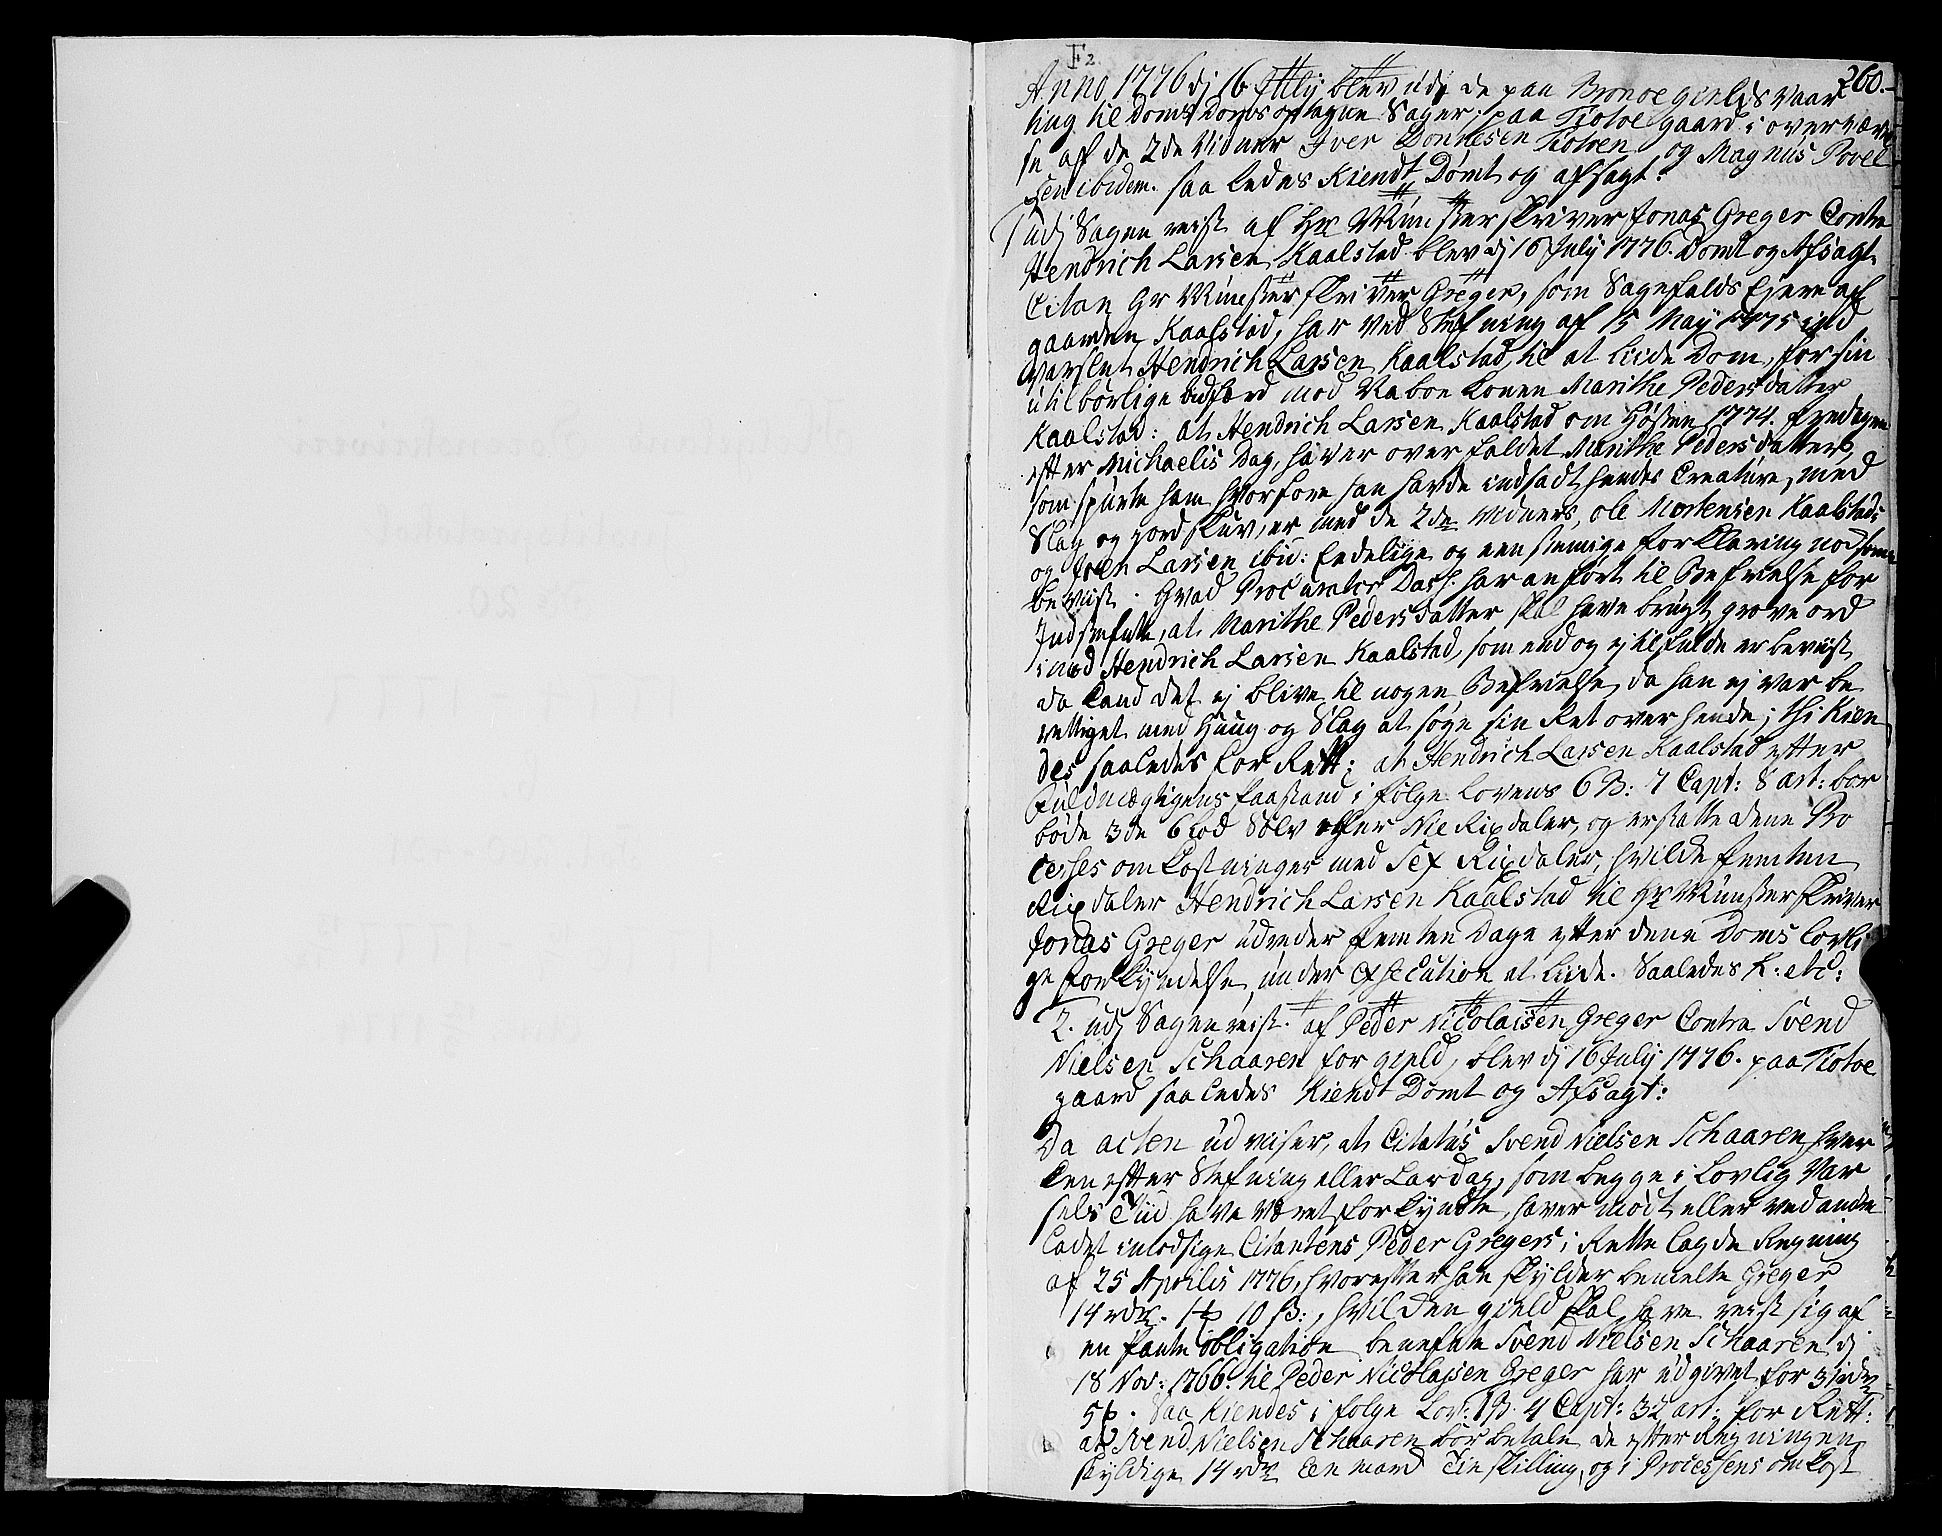 F2.
260.
Anno 1776 dj 16 Jully blev udj de paa Brønoe giedts Vaar
ting til Doms optagne Sager, paa Tiotoe gaard i overværel
se af de 2de Vidner Iver Donnesen Tiotoen og Magnus Povel
sen ibidem. saa ledes Kiendt Dømt og afsagt:
1 udj Sagen reist af Hr Münsterskriver Jonas Greger Contra
Hendrich Larsen Kaalstad blev dj 16 July 1776. Domt og Afsagt.
Citan Hr Münsterskriver Greger, som Sagefalds Ejere af
gaarden Kaalstad, har ved Stefning af 15 May 1775 ind
varslet Hendrich Larsen Kaalstad, til at liide Dom, for sin
utilbørlige adfærd mod Naboe Konen Marithe Pedersdatter
Kaalstad: at Hendrich Larsen Kaalstad om Høsten 1774. fredagen
efter Michaelis Dag, haver over faldet Marithe Pedersdatter,
som spurte ham hvorfore han havde indsadt hendes Creature, med
Slag og jordskuv, er med de 2de Vidners, Ole Mortensen Kaalstads
og Joen Larsen ibid: Eedelige og eenstemmige forklaring nodsom
beviist. Hvad Procurator Dass har anført til Befrielse for
Indstefnte, at Marithe Pedersdatter skal have brugt grove ord
imod Hendrich Larsen Kaalstad, som end og ej til fulde er beviist,
da Kand det ej blive til nogen Befrielse, da han ej var be
rettiget med Hug og Slag at søge sin Ret over hende; thi Kien
des saaledes for Rett: at Hendrich Larsen Kaalstad efter
Fuldmægtigens Paastand i følge Lovens 6 B: 7 Capt: 8 art: bør
bøde 3de 6 Lod Sølv eller Nie Rixdaler, og erstatte denne Pro
cesses omkostninger med Sex Rixdaler, hvilke femten
Rixdaler Hendrich Larsen Kaalstad til Hr Münsterskriver
Jonas Greger udreder femten Dage efter denne Doms lovli
ge forkyndelse, under Execution at liide. Saaledes K: etc:
2. udj Sagen reist af Peder Nicolaisen Greger Contra Svend
Nielsen Schaaren for gield, blev dj 16 July 1776. paa Tiotoe
gaard saaledes Kiendt Dømt og Afsagt:
Da acten udviser, at Citatus Svend Nielsen Schaaren hver
ken efter Stefning eller Lavdag, som begge i Lovlig Var
sels Tiid have været forkyndte, haver mødt eller ved andre
ladet imodsige Citantens Peder Gregers, i Rette lagde Regning
af 25 Aprilis 1776, hvorefter han skylder bemelte Greger
14 rdr. 1 # 10 ß:, hvilken gield skal have reist sig af
en Pante obligation benefnte Svend Nielsen Schaaren dj
18 Nov: 1766. til Peder Nicolaisen Greger har udgivet for 31 rdr
5 #. Saa Kiendes i følge Lov: 1 B. 4 Capt: 32 art: for Rett:
at Svend Nielsen Schaaren bør betale de efter Regningen
skyldige 14 rdr Een mark Tie skilling, og i Processens omkost